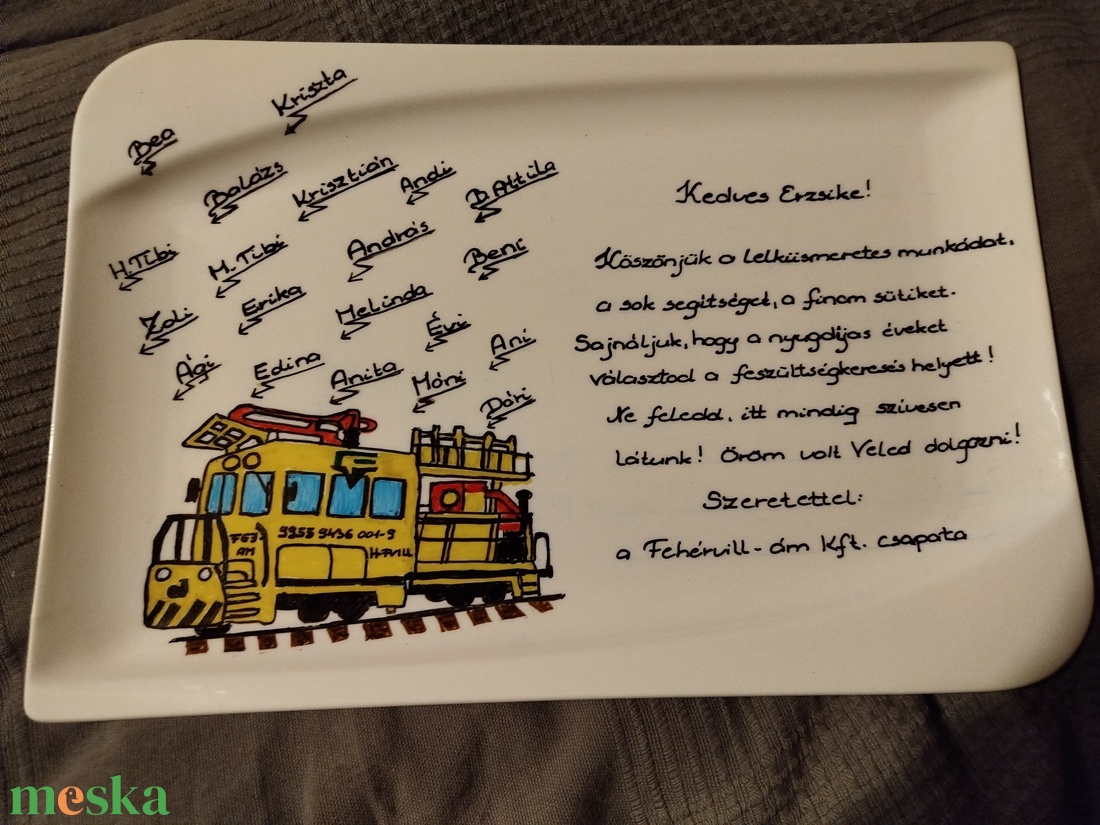 Kriszta
Bea
Balázs
Krisztián
Andi
B. Attila
H. Tibi
M. Tibi
András
Beni
Zoli
Erika
Melinda
Évi
Ani
Ági
Edina
Anita
Móni
Dóri
Kedves Erzsike!
Köszönjük a lelkiismeretes munkádat,
a sok segítséget, a finom sütiket.
Sajnáljuk, hogy a nyugdíjas éveket
választod a feszültségkeresés helyett!
Ne feledd, itt mindig szívesen
látunk! Öröm volt Veled dolgozni!
Szeretettel:
a Fehérvill-ám Kft. csapata
9955 9436 001-9
H-FVILL
meska